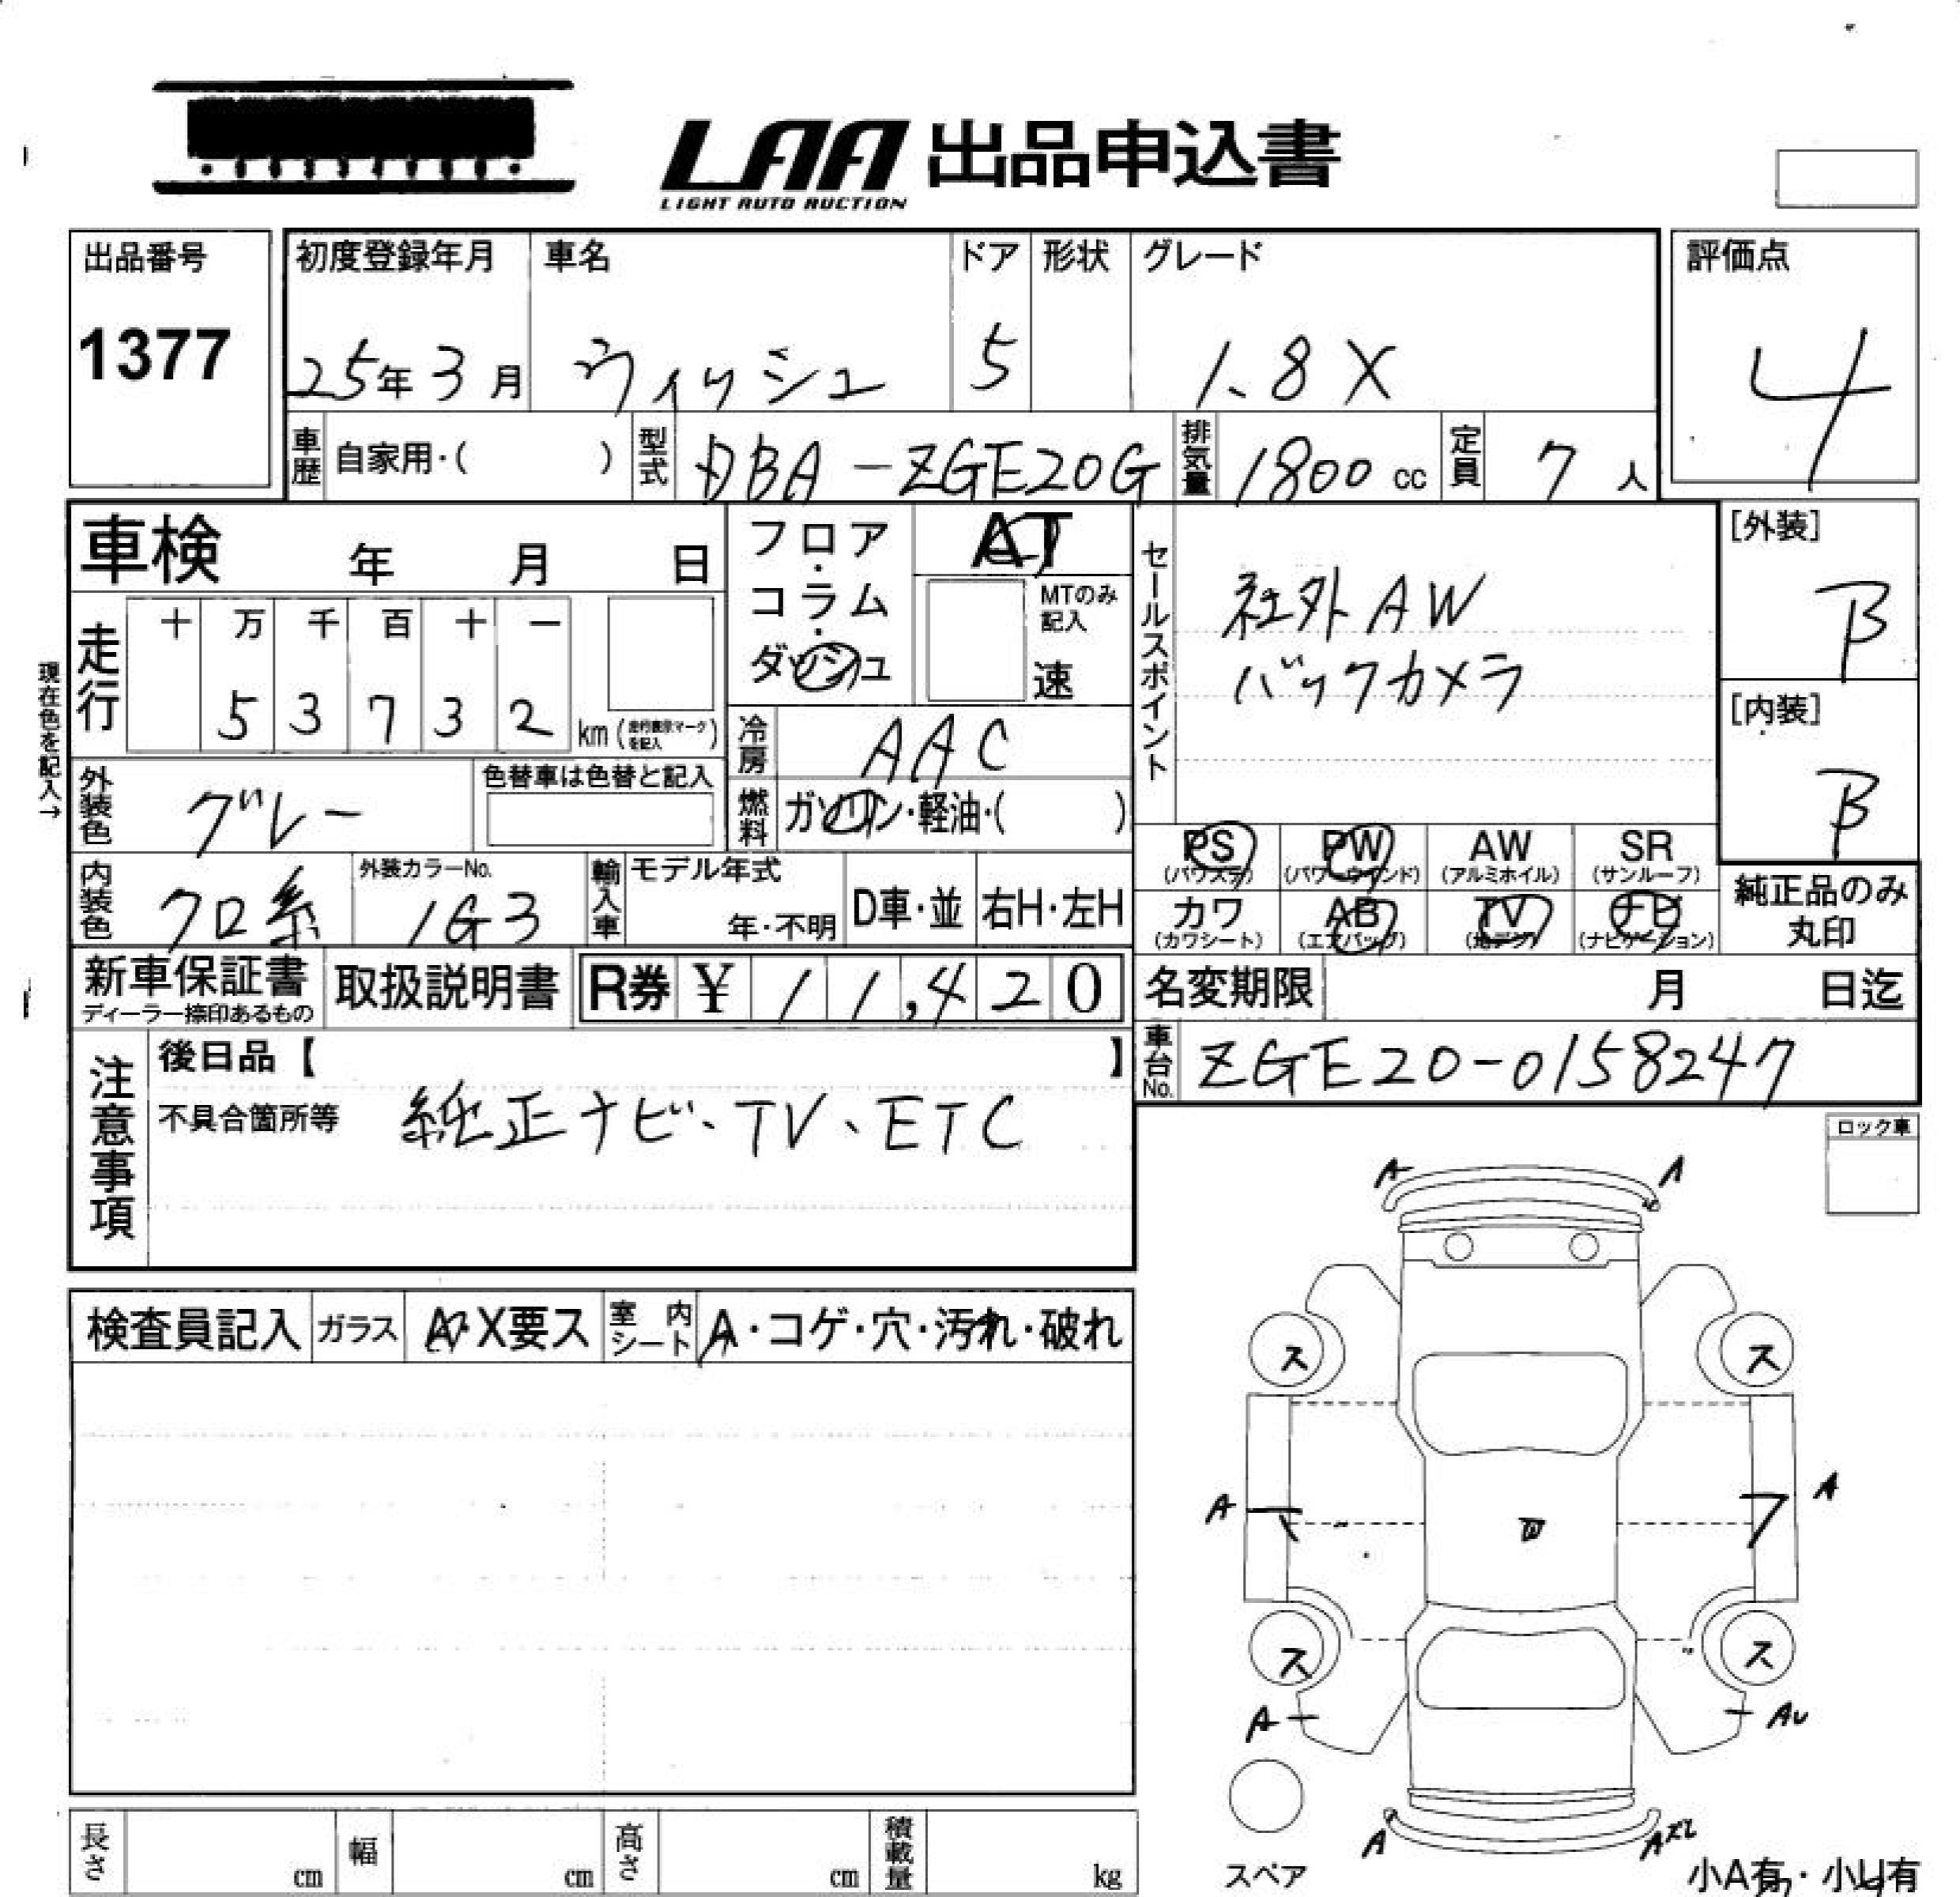 LAA 出品申込書
LIGHT AUTO AUCTION
出品番号
1377
初度登録年月 車名 ドア 形状 グレード
25年3月 ウィッシュ 5 1.8X
評価点
4
車歴 自家用・( ) 型式 DBA-ZGE20G 排気量 1800cc 定員 7人
車検 年 月 日
フロア・コラム・ダッシュ
AT
MTのみ記入
速
セールスポイント
社外AW
バックカメラ
[外装]
B
[内装]
B
現在色を記入→
走行
十 万 千 百 十 一
5 3 7 3 2 km(走行表示マークを記入)
冷房 AAC
燃料 ガソリン・軽油・( )
外装色 グレー
色替車は色替と記入
内装色 クロ系
外装カラーNo.
1G3
輸入車 モデル年式
年・不明 D車・並 右H・左H
PS (パワステ) PW (パワーウインド) AW (アルミホイル) SR (サンルーフ)
カワ (カワシート) AB (エアバッグ) TV (地デジ) ナビ (ナビゲーション)
純正品のみ
丸印
新車保証書
ディーラー捺印あるもの
取扱説明書
R券 ¥11,420
名変期限 月 日迄
車台No. ZGE20-0158247
注意事項
後日品【 】
不具合箇所等 純正ナビ、TV、ETC
ロック車
検査員記入 ガラス A・X要ス 室内シート A・コゲ・穴・汚れ・破れ
A A
ス ス
A A
W
ス ス
A AU
A AXL
スペア
小A有・小U有
長さ cm 幅 cm 高さ cm 積載量 kg